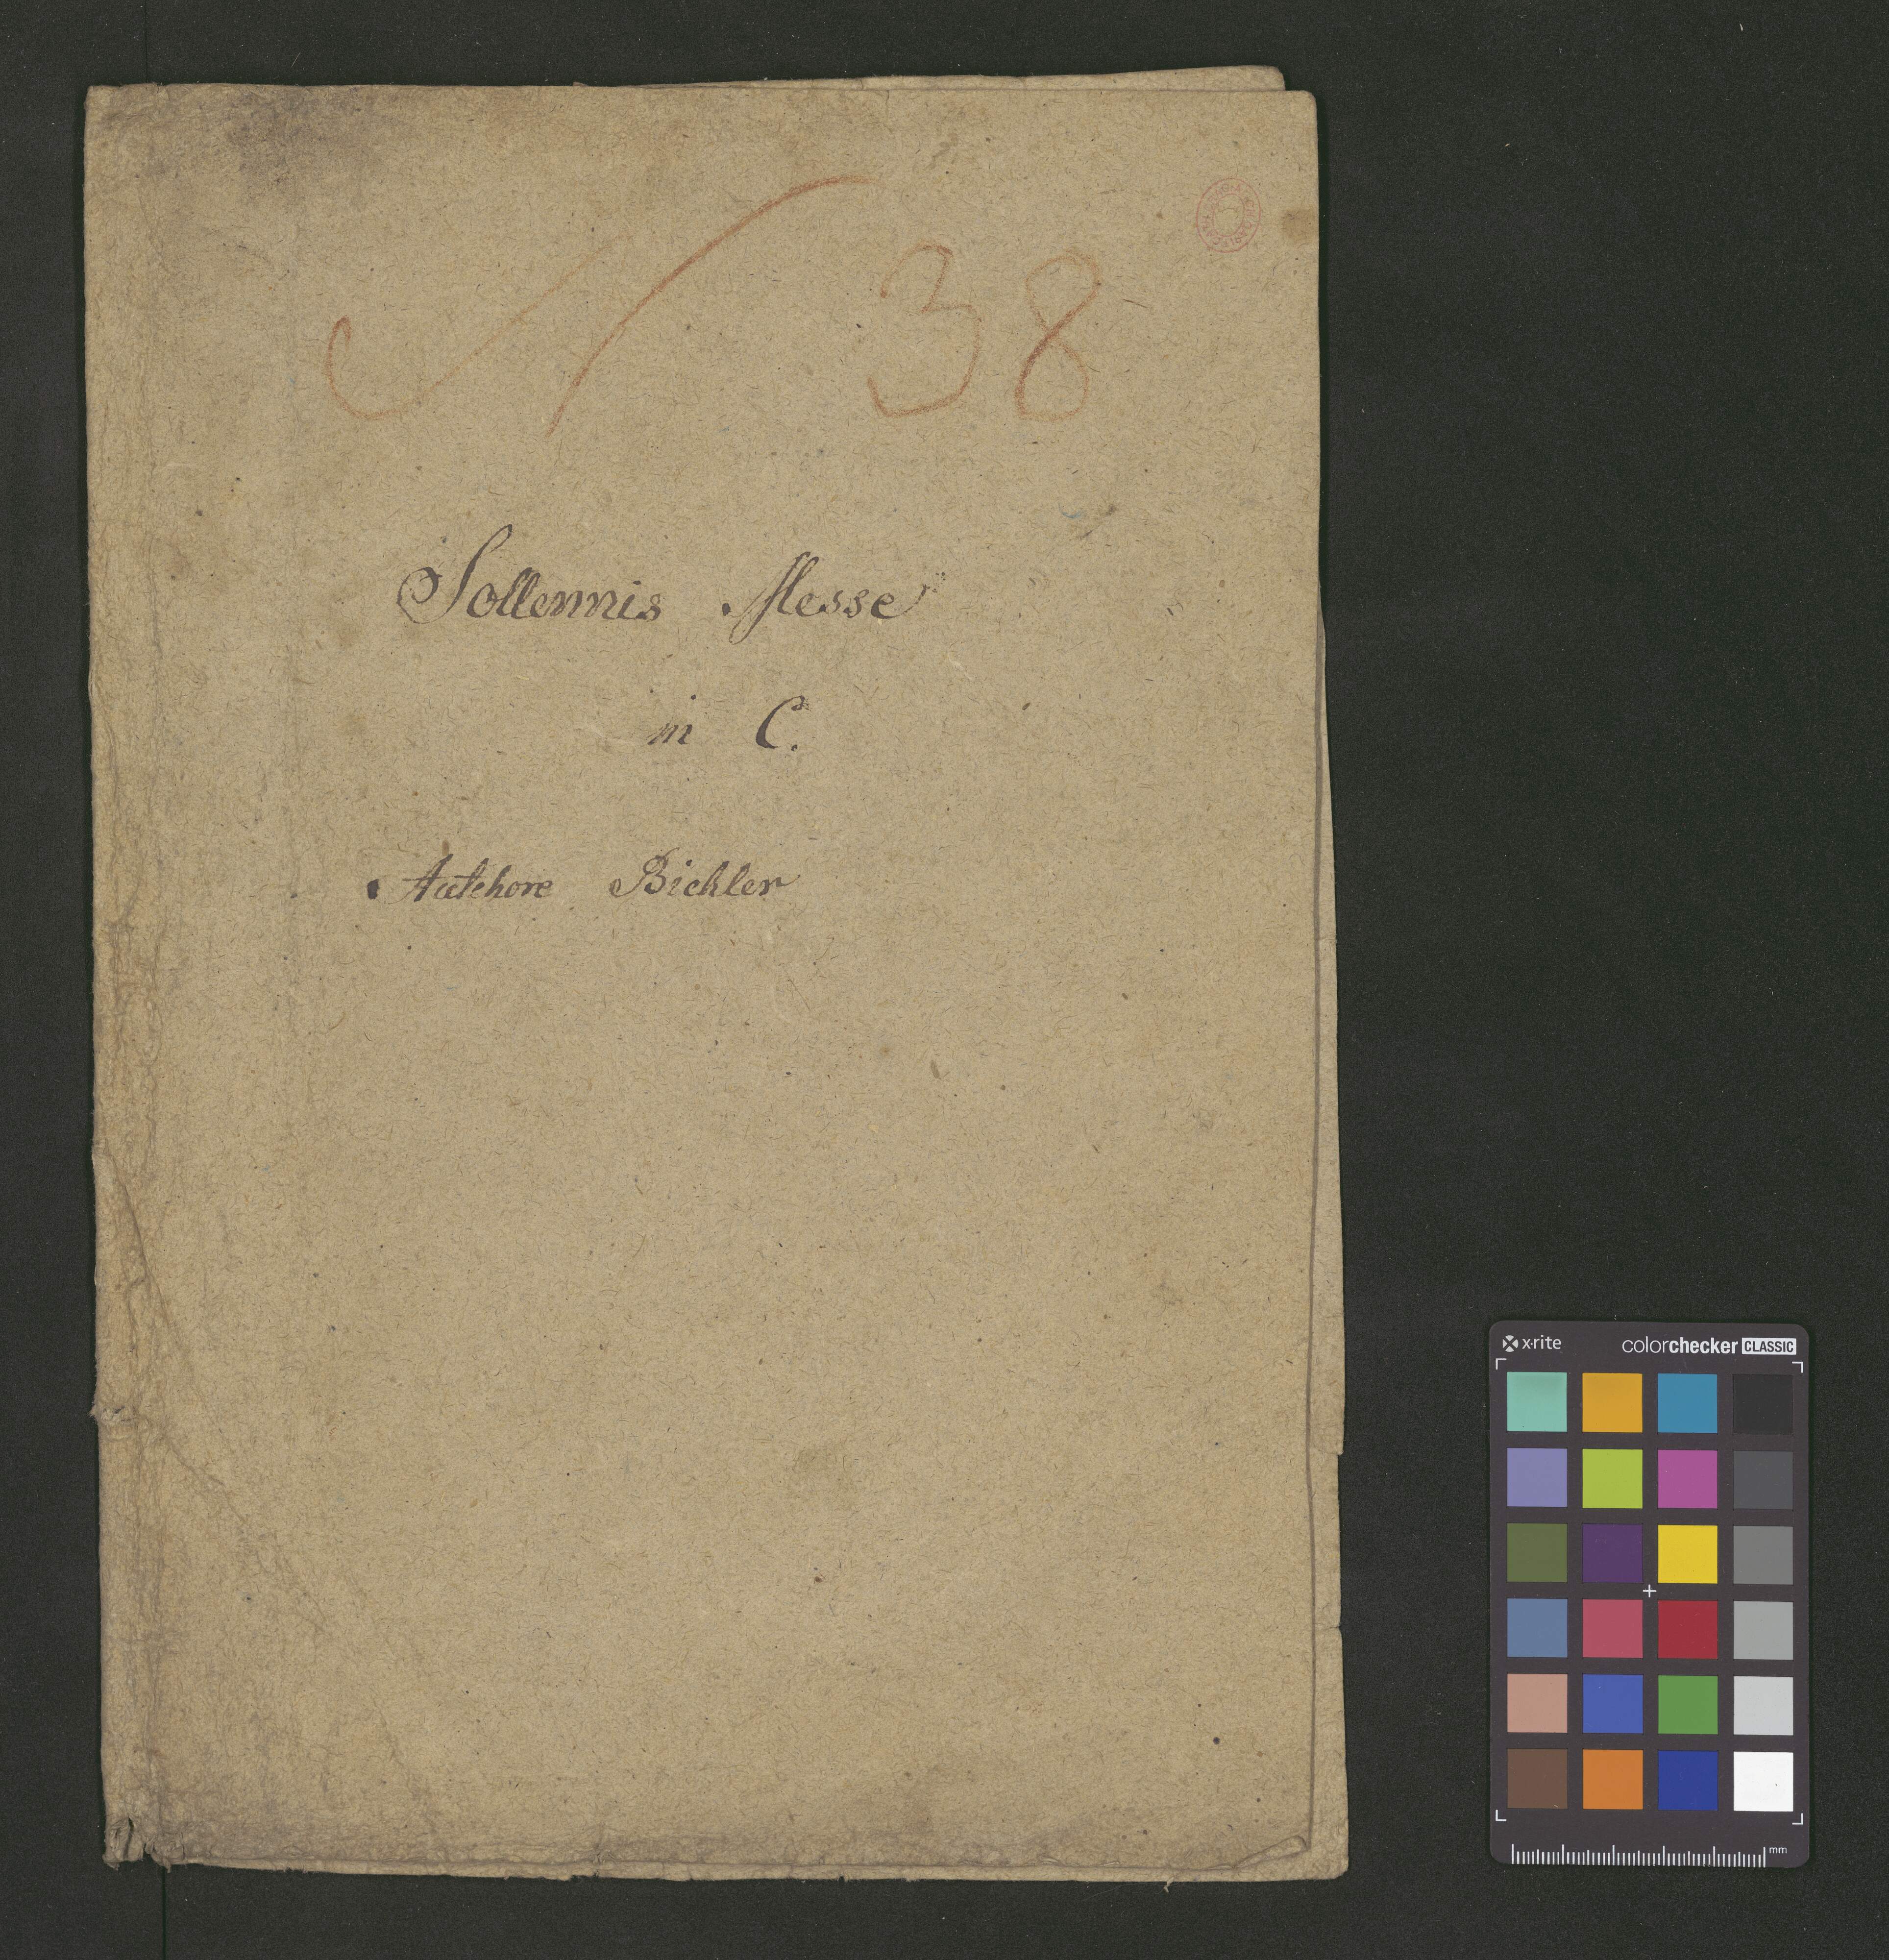 N 38
Sollennis Messe
in C.
Autehore Bichler
x·rite colorchecker CLASSIC
mm